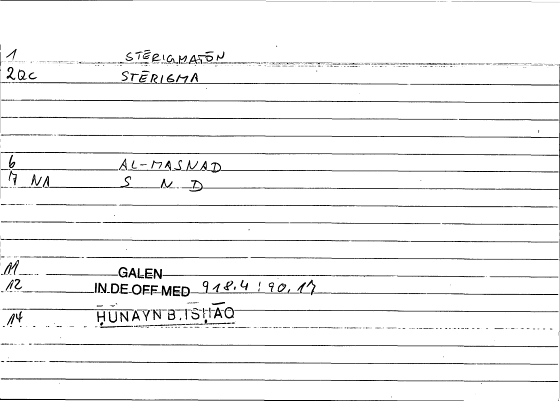 1 STĒRIGMATŌN
2QC STĒRIGMA
6 AL-MASNAD
7 NA S N D
11 GALEN
12 IN.DE OFF MED 918.4 : 90.17
14 ḤUNAYN B. ISḤĀQ